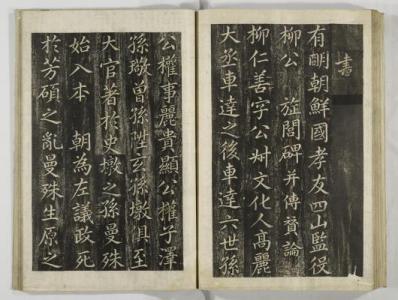 書
有明朝鮮國孝友四山監役
柳公 旌閭碑并傳賛論
柳仁善字公 文化人髙麗
大丞車達之後車達六世孫
公權事麗貴顯公權子澤
孫璥曾孫陞玄孫墩俱至
大官著於史墩之孫曼殊
始入本 朝為左議政死
於芳碩之亂曼殊生原之